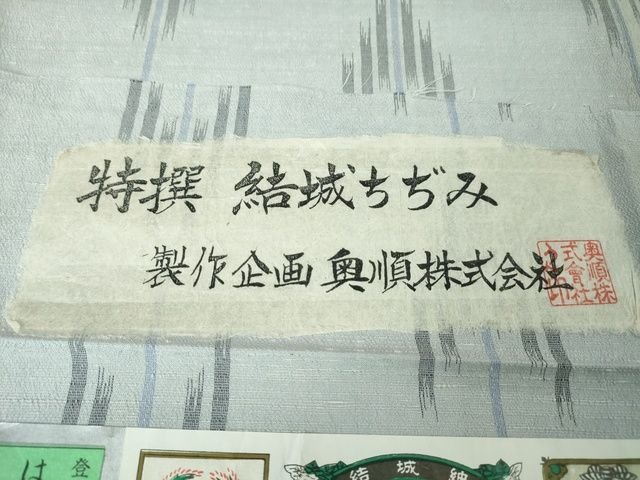 特撰 結城ちぢみ
製作企画 奥順株式会社
奥順株
式會社
印
登
は
結城紬